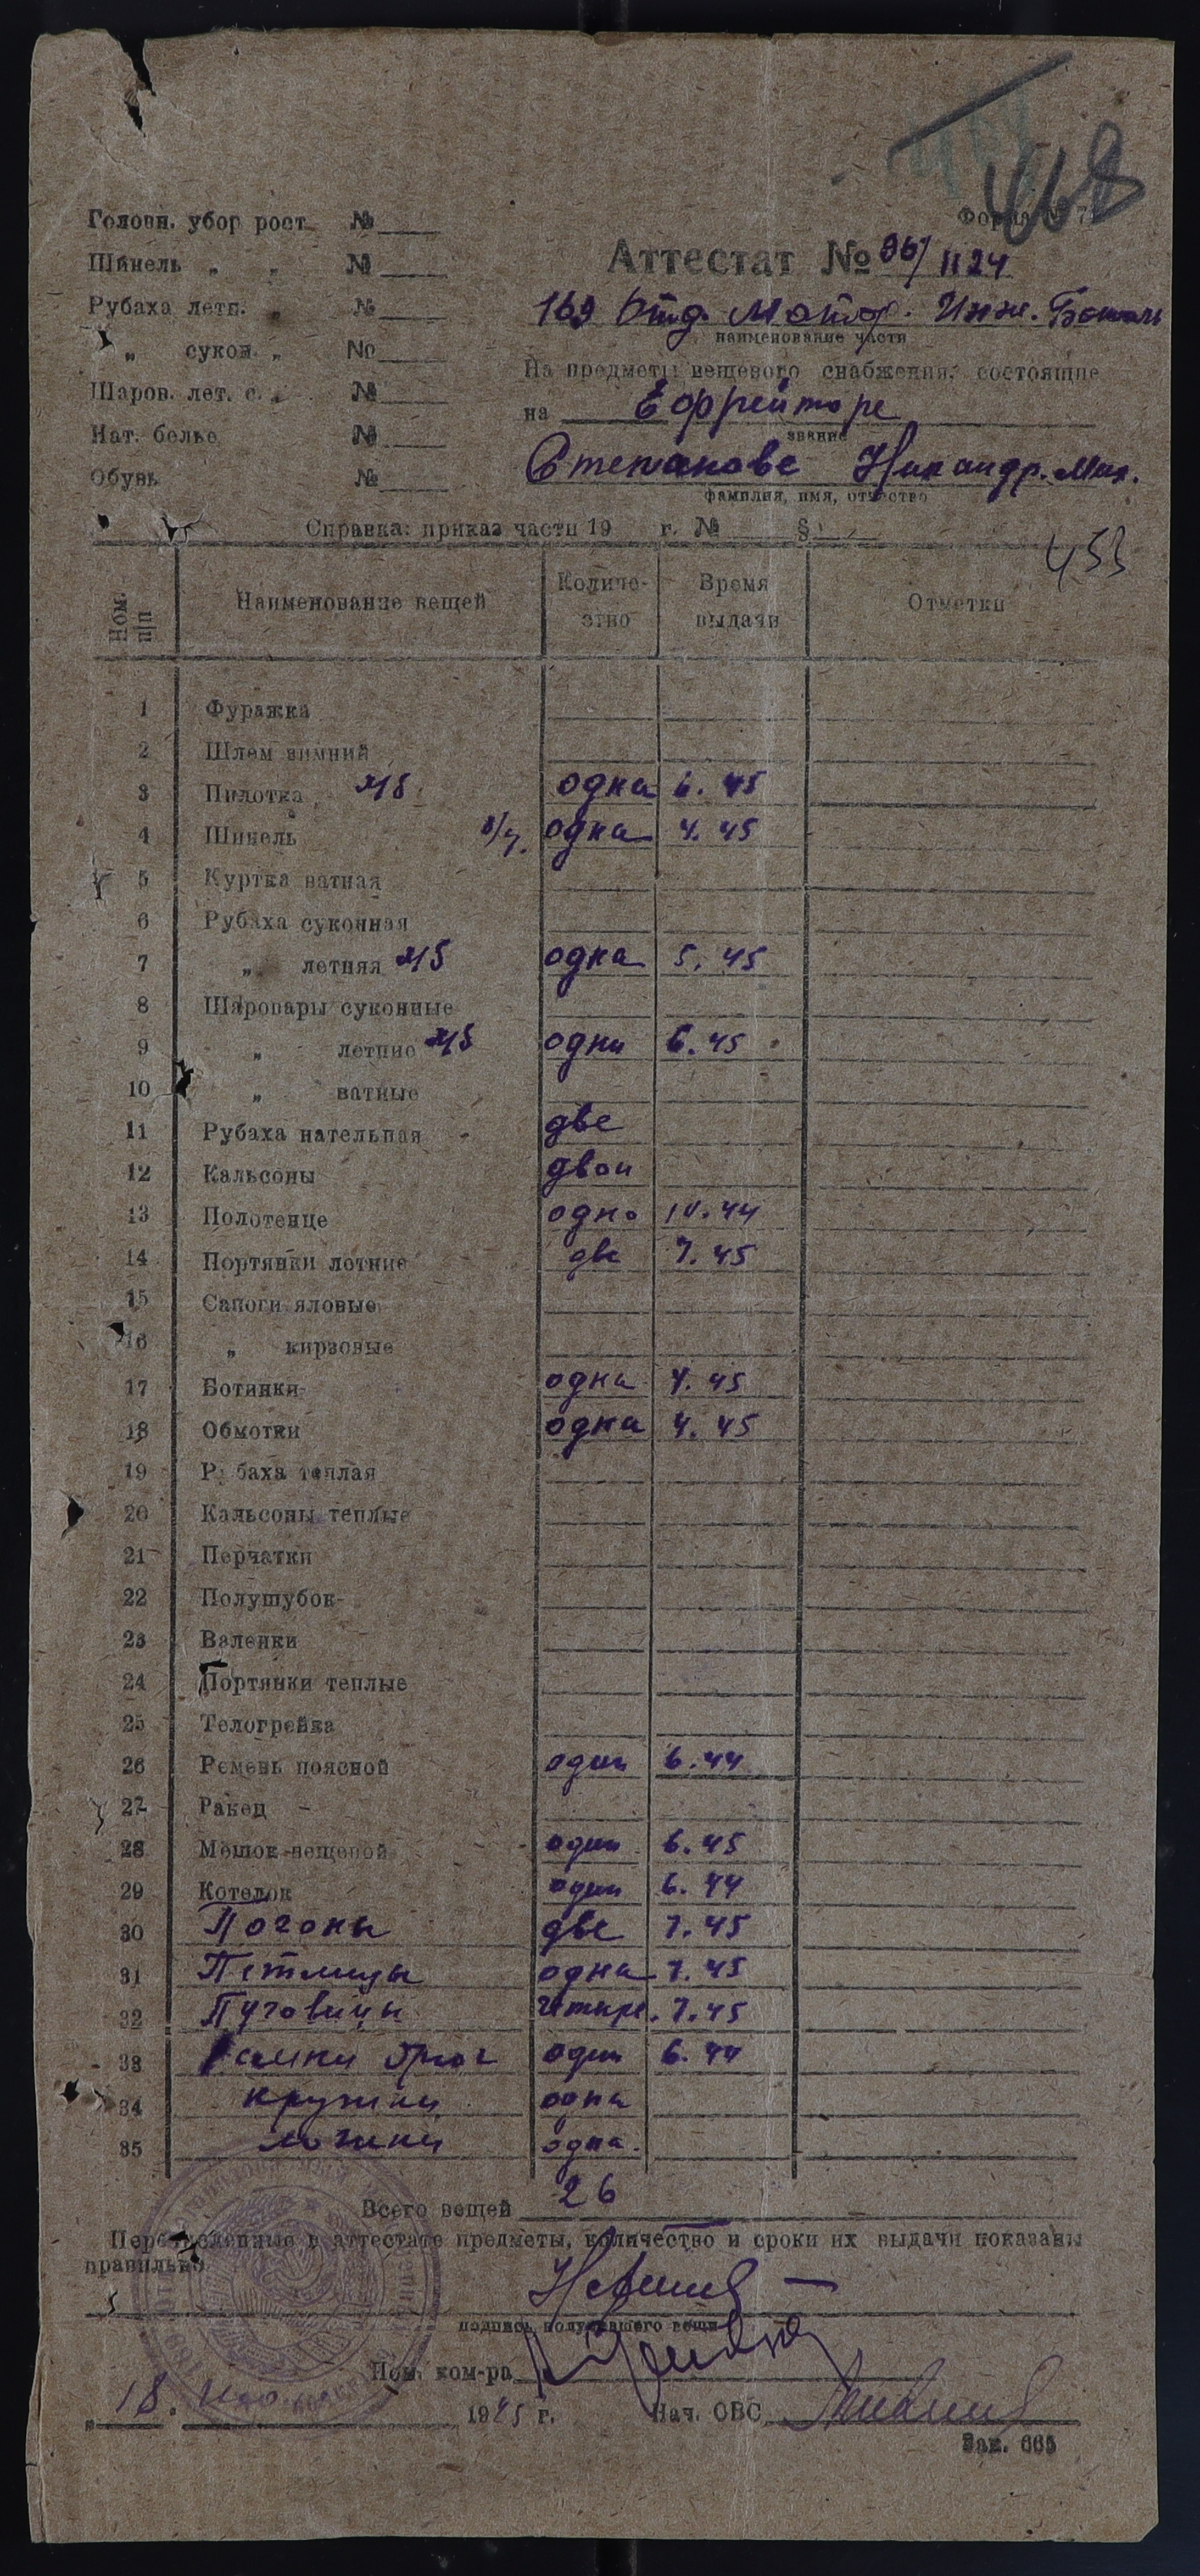 468
Форма № 7
Головн. убор рост № ___
Аттестат № 96/1124
Шинель „ „ № ___
169 Отд. Мотор. Инж. Баталь
Рубаха летн. „ № ___
наименование части
„ сукон. „ № ___
На предметы вещевого снабжения, состоящие
Шаров. лет. с. „ № ___
на Ефрейторе
Нат. белье № ___
звание
Степанове Никандр. Мих.
Обувь № ___
фамилия, имя, отчество
Справка: приказ части 19 г. № ___ § ___
453
Ном. п/п Наименование вещей Количе- Время Отметки
ство выдачи
1 Фуражка
2 Шлем зимний
3 Пилотка одна 6. 45
4 Шинель б/у. одна 4. 45
5 Куртка ватная
6 Рубаха суконная
7 „ летняя одна 5. 45
8 Шаровары суконные
9 „ летние одни 6. 45
10 „ ватные
11 Рубаха нательная две
12 Кальсоны двои
13 Полотенце одно 10. 44
14 Портянки летние две 7. 45
15 Сапоги яловые
16 „ кирзовые
17 Ботинки одна 4. 45
18 Обмотки одна 4. 45
19 Рубаха теплая
20 Кальсоны теплые
21 Перчатки
22 Полушубок
23 Валенки
24 Портянки теплые
25 Телогрейка
26 Ремень поясной один 6. 44
27 Ранец
28 Мешок вещевой один 6. 45
29 Котелок один 6. 44
30 Погоны две 7. 45
31 Петлицы одна 7. 45
32 Пуговицы четыре. 7. 45
33 один 6. 44
34 кружки одна
35 ложки одна.
Всего вещей 26
Перечисленные в аттестате предметы, количество и сроки их выдачи показаны
правильно
подпись получившего вещи
Пом. ком-ра
„ 18. 1945 г. Нач. ОВС
Зак. 665